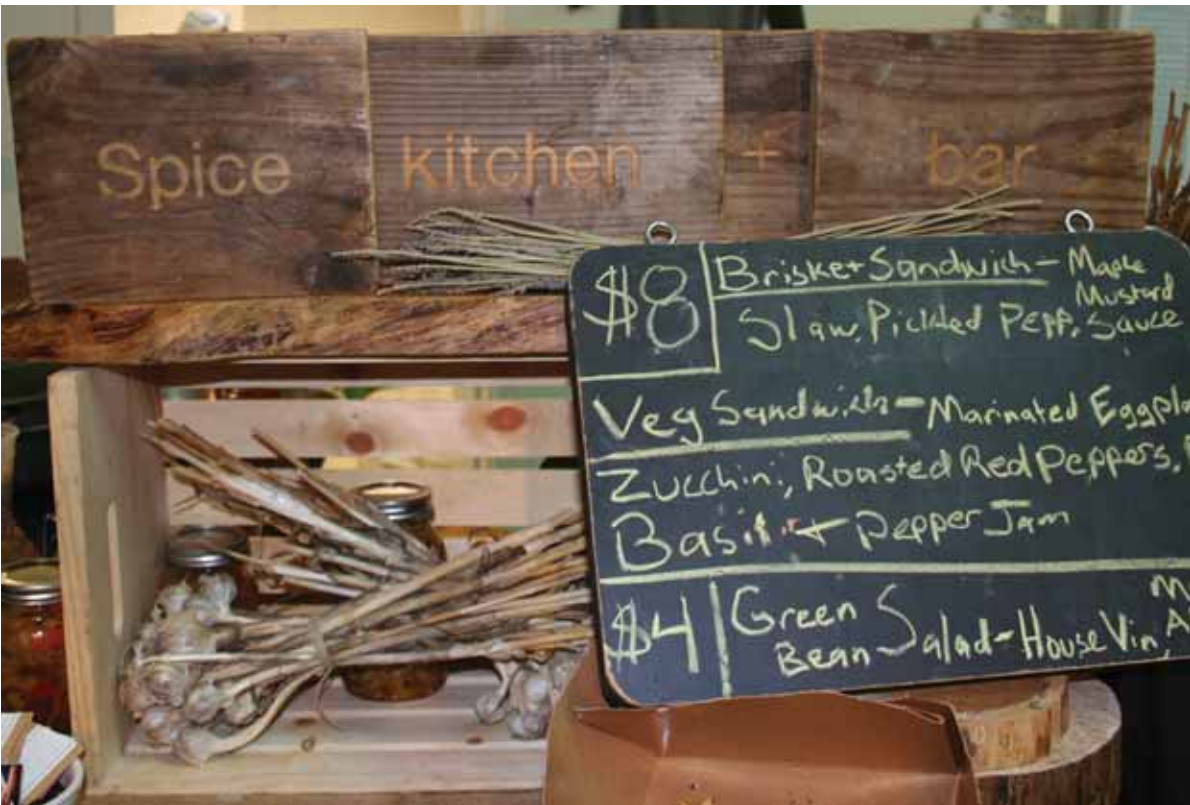 Spice kitchen + bar
$8 Brisket Sandwich - Maple
Mustard
Slaw, Pickled Pepp. Sauce
Veg Sandwich - Marinated Eggpla
Zucchini, Roasted Red Peppers,
Basil + Pepper Jam
$4 Green
Bean Salad - House Vin,